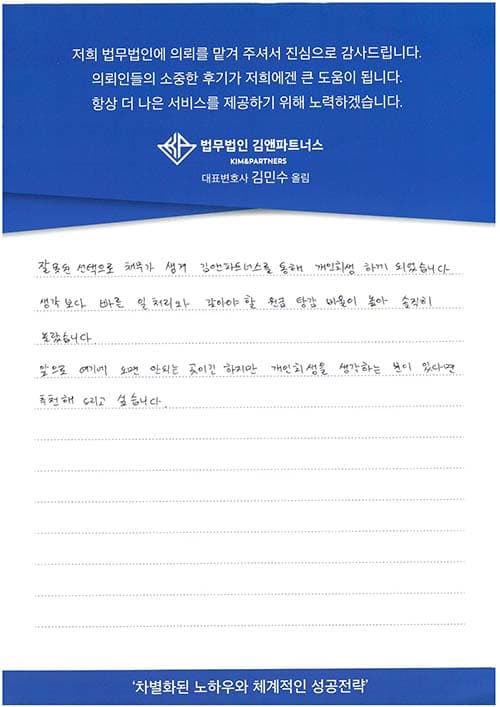 저희 법무법인에 의뢰를 맡겨 주셔서 진심으로 감사드립니다.
의뢰인들의 소중한 후기가 저희에겐 큰 도움이 됩니다.
항상 더 나은 서비스를 제공하기 위해 노력하겠습니다.
법무법인 김앤파트너스
KIM&PARTNERS
대표변호사 김민수 올림
잘못된 선택으로 채무가 생겨 김앤파트너스를 통해 개인회생 하게 되었습니다.
생각보다 빠른 일처리와 갚아야 할 원금 탕감 비율이 높아 솔직히
놀랐습니다.
앞으로 여기에 오면 안되는 곳이긴 하지만 개인회생을 생각하는 분이 있다면
추천해 드리고 싶습니다.
'차별화된 노하우와 체계적인 성공전략'